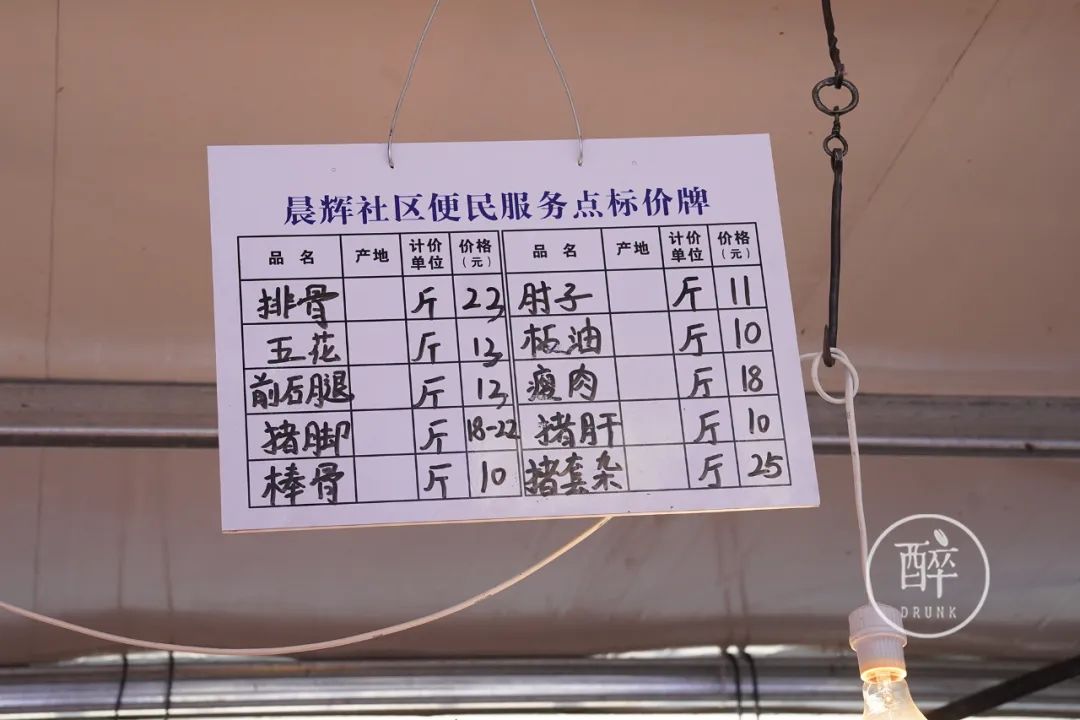 晨辉社区便民服务点标价牌
品名 产地 计价单位 价格（元） 品名 产地 计价单位 价格（元）
排骨 斤 23 肘子 斤 11
五花 斤 13 板油 斤 10
前后腿 斤 13 瘦肉 斤 18
猪脚 斤 18-22 猪肝 斤 10
棒骨 斤 10 猪套杂 斤 25
醉
DRUNK